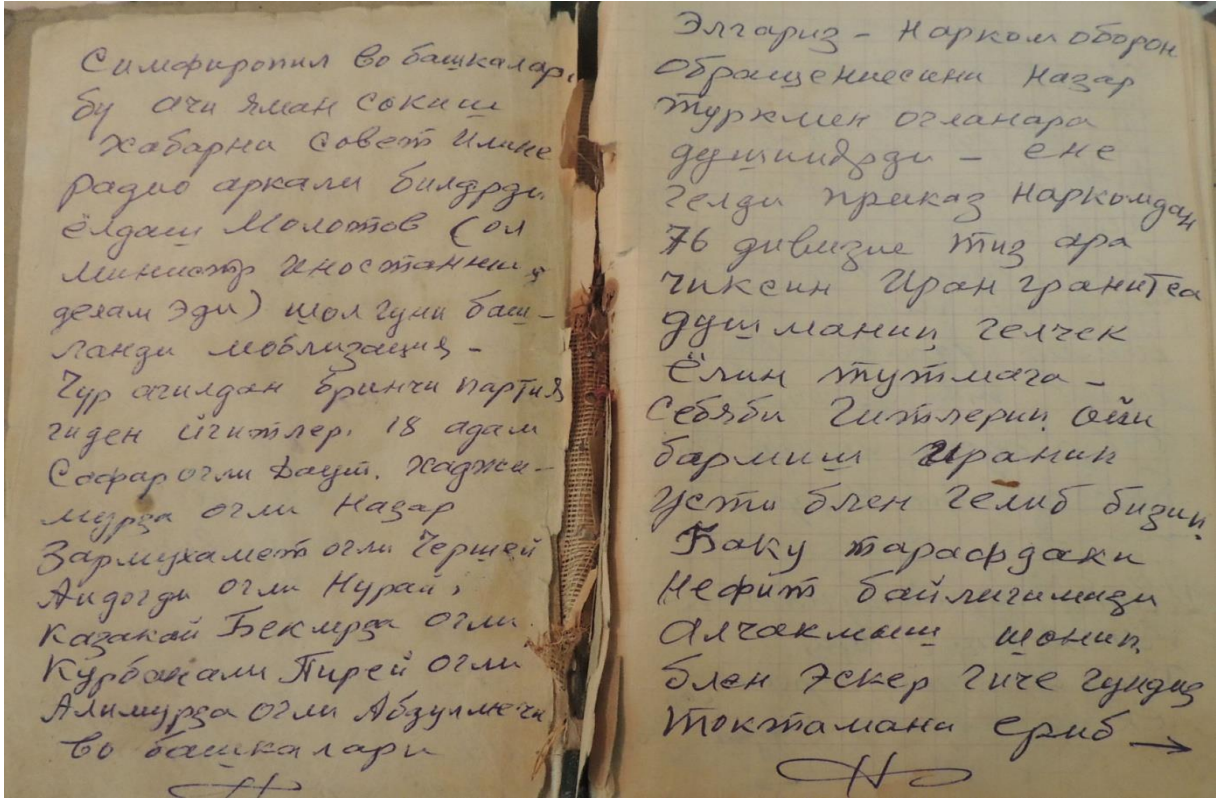 Симфиропил во башкалар.
бу ачи яман сокиш
хабарни Совет Илине
радио аркали билдрди.
ёлдаш Молотов (ол
министр иностанний
дехам эди) шол гуни баш-
ланди моблизация -
Чур агилдан бринчи партия
гиден йгитлер. 18 адам
Сафар огли Даут. Хаджи-
мурза огли Назар
Зармухамет огли Чершей
Аидогди огли Нурай,
Казакай Бекмрза огли
Курбанали Пирей огли
Алимурза огли Абдуллечи
во башкалари
Элгариз - Нарком оборон
обращениесини назар
туркмен огланара
душиндрди - ене
гелди приказ Наркомдан
76 дивизие тиз ара
чиксин Иран гранитса
душманиң гелчек
Ёлин тутмага -
Себяби Гитлериң ойи
бармиш Ираниң
усти блен гелиб бизиң
Баку тарафдаки
Нефит байлигимизи
Алчакмыш шониң
блен Эскер гиче гундиз
токтамани ериб →